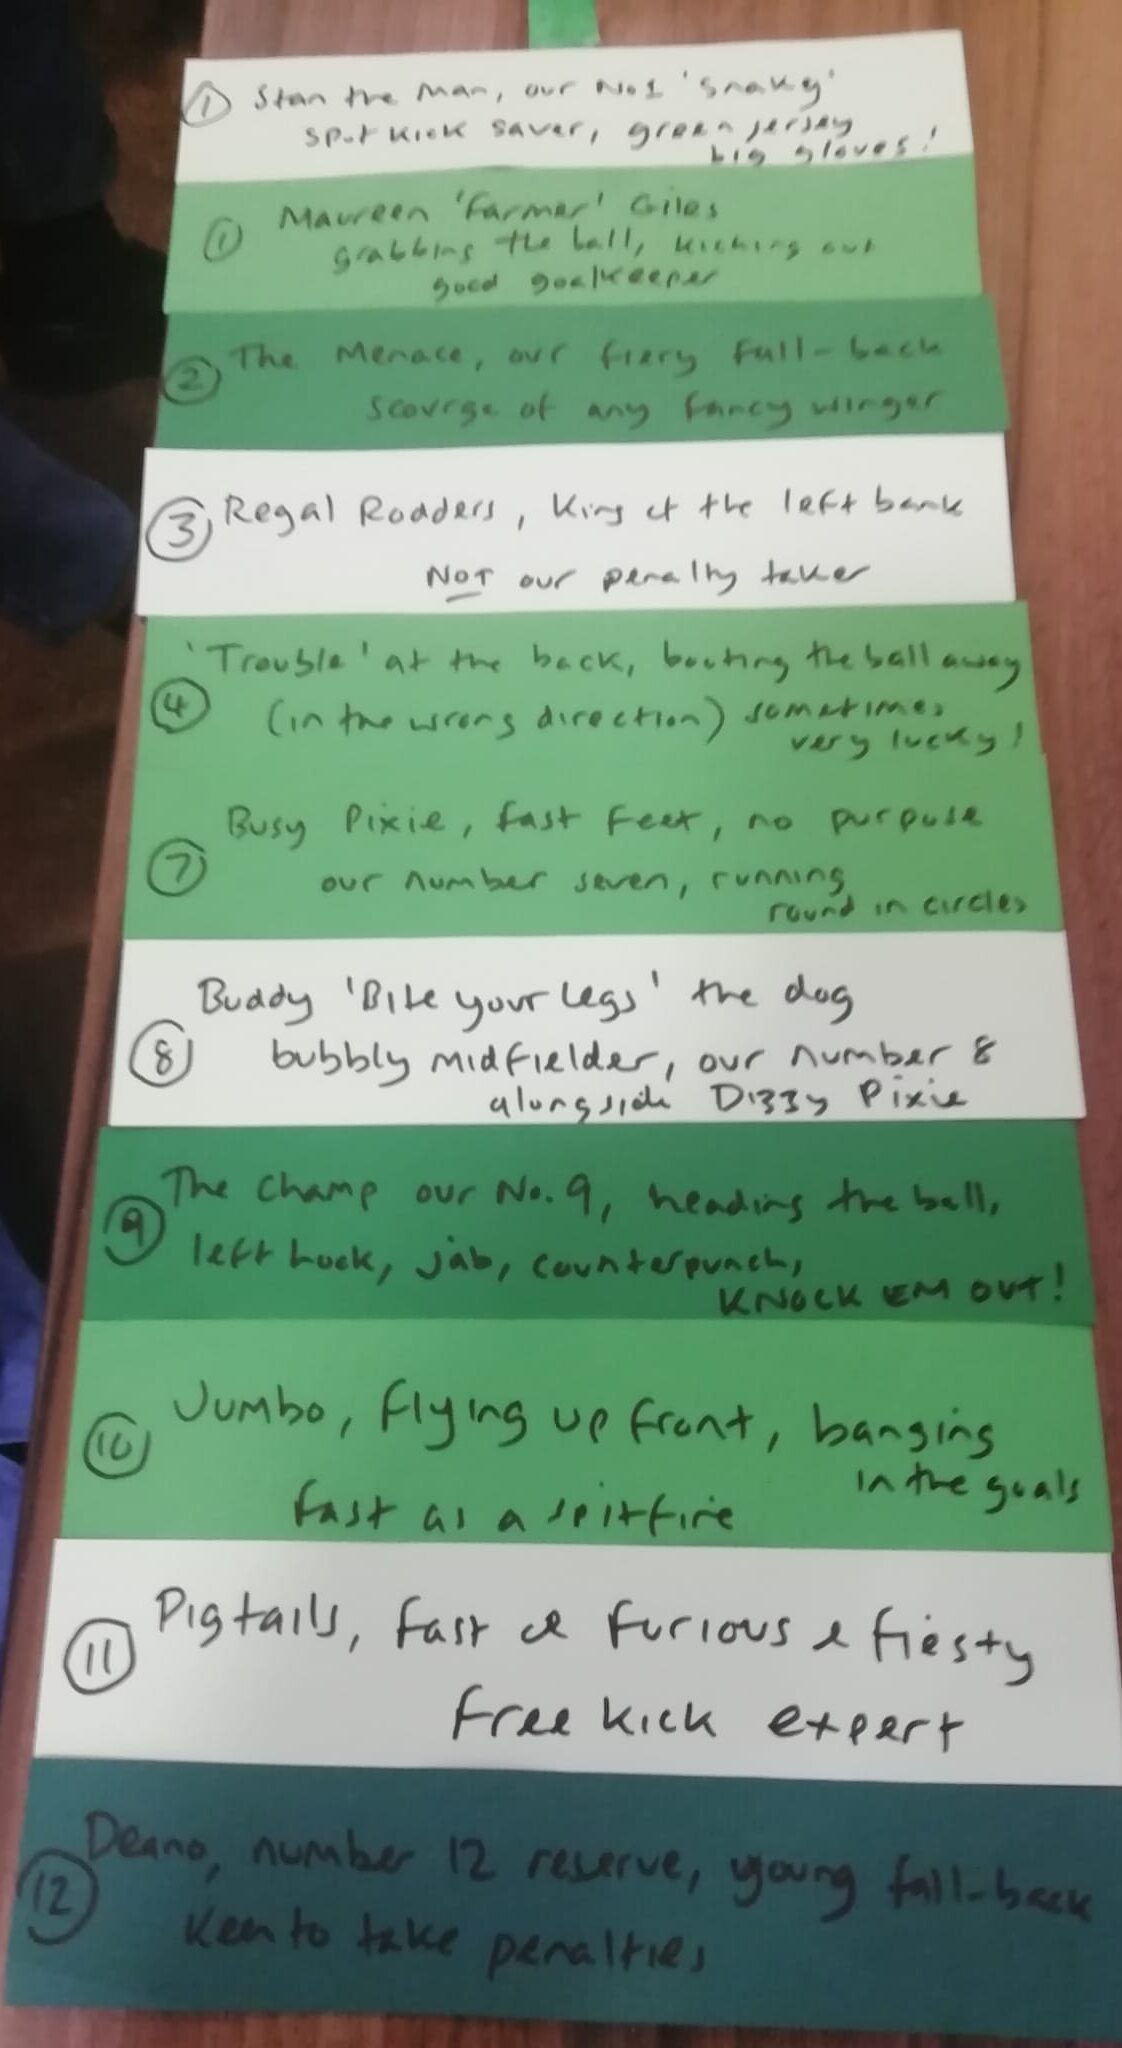 ① Stan the Man, our No1 'Snaky'
spot kick saver, green jersey
big gloves!
① Maureen 'Farmer' Giles
grabbing the ball, kicking out
good goalkeeper
② The Menace, our fiery full-back
scourge of any fancy winger
③ Regal Rodders, King of the left bank
NOT our penalty taker
④ 'Trouble' at the back, booting the ball away
(in the wrong direction) sometimes
very lucky!
⑦ Busy Pixie, fast feet, no purpose
our number seven, running
round in circles
⑧ Buddy 'Bite your Legs' the dog
bubbly midfielder, our number 8
alongside Dizzy Pixie
⑨ The Champ our No. 9, heading the ball,
left hook, jab, counterpunch,
KNOCK EM OUT!
⑩ Jumbo, flying up front, banging
in the goals
fast as a spitfire
⑪ Pigtails, fast & furious & fiesty
free kick expert
⑫ Deano, number 12 reserve, young full-back
Keen to take penalties